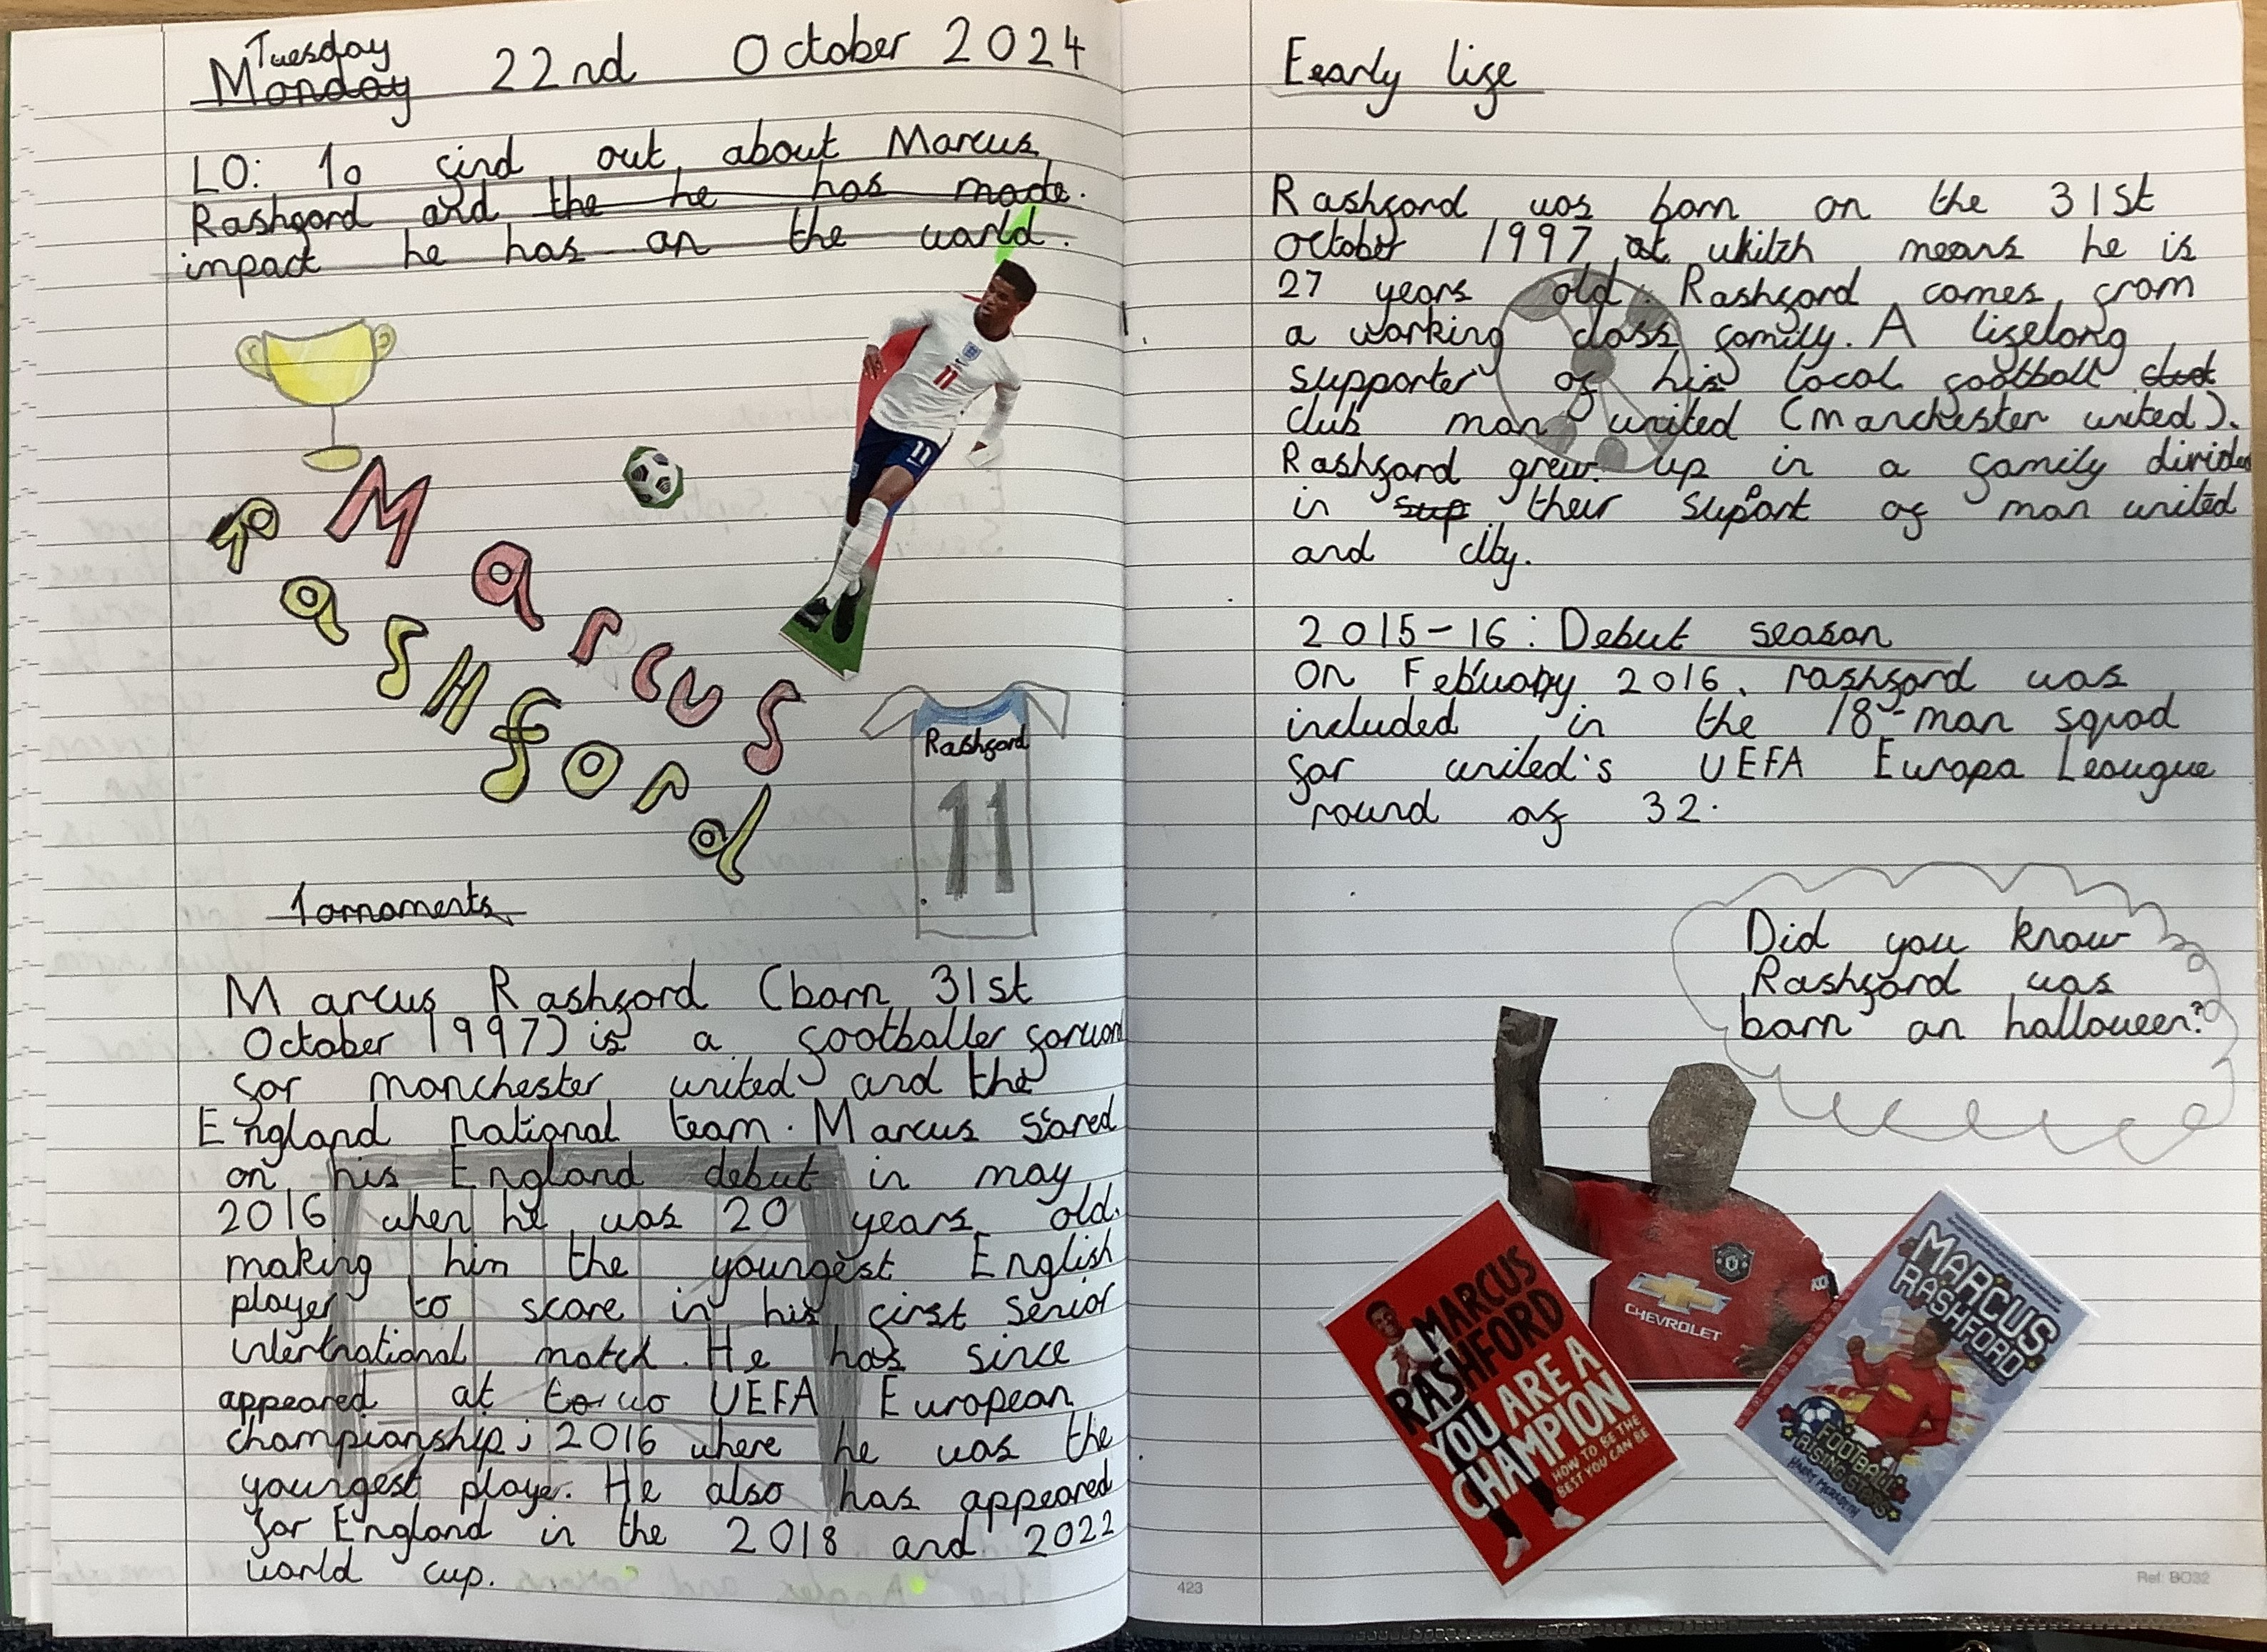 Tuesday
Monday 22nd October 2024
LO: To find out about Marcus
Rashford and the he has made.
impact he has on the world.
Marcus
Rashford
Rashford
11
11
11
Tornaments
Marcus Rashford (born 31st
October 1997) is a footballer forward
for manchester united and the
England national team. Marcus scored
on his England debut in may
2016 when he was 20 years old.
making him the youngest English
player to score in his first senior
international match. He has since
appeared at two UEFA European
championship; 2016 where he was the
youngest player. He also has appeared
for England in the 2018 and 2022
world cup.
Eearly life
Rashford was born on the 31st
October 1997 at whitch means he is
27 years old. Rashford comes from
a working class family. A lifelong
supporter of his local football
club man united (manchester united).
Rashford grew up in a family divided
in sup their support of man united
and city.
2015-16: Debut season
on Febuary 2016, rashford was
included in the 18-man squad
for united's UEFA Europa Leaugue
round of 32.
Did you know
Rashford was
born on halloween?
CHEVROLET
MARCUS
RASHFORD
YOU ARE A
CHAMPION
HOW TO BE THE
BEST YOU CAN BE
MARCUS
RASHFORD
FOOTBALL
RISING STARS
HARRY MEREDITH
423
Ref: BO32